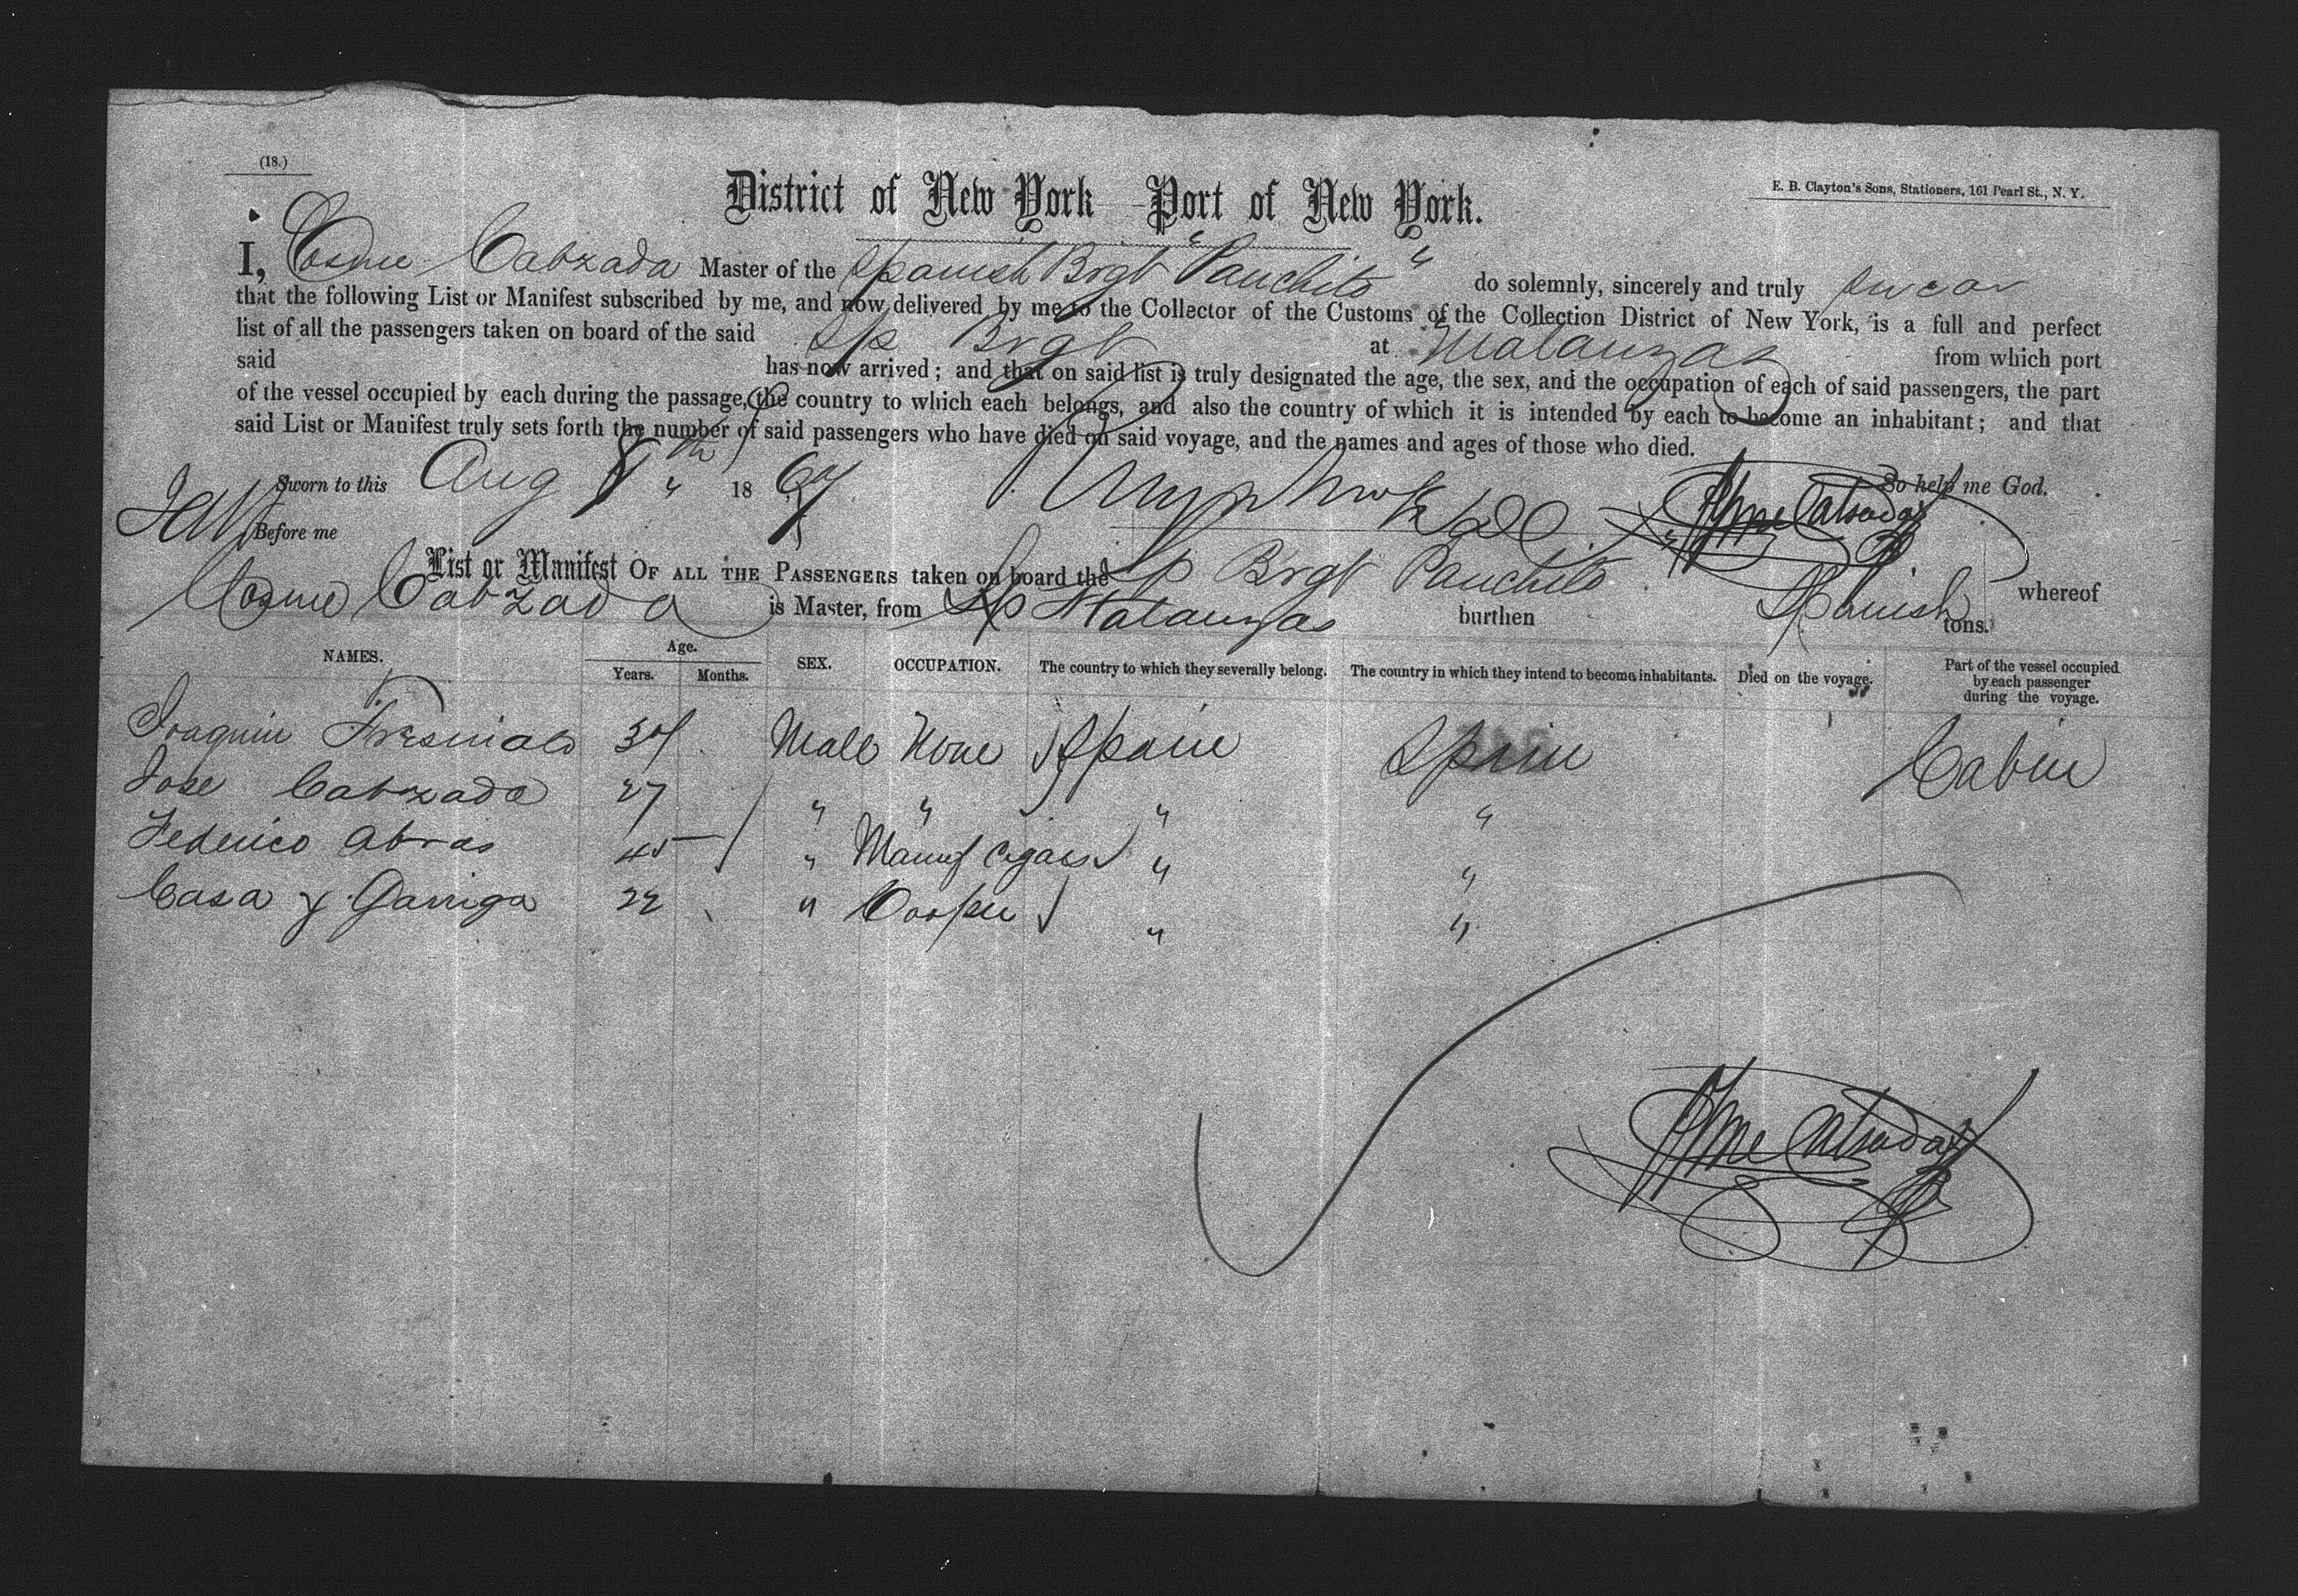 (18.)
District of New York - Port of New York.
E. B. Clayton's Sons, Stationers, 161 Pearl St., N. Y.
I, Cosme Cabzada Master of the Spanish Brgt "Panchito" do solemnly, sincerely and truly swear
that the following List or Manifest subscribed by me, and now delivered by me to the Collector of the Customs of the Collection District of New York, is a full and perfect
list of all the passengers taken on board of the said Sp Brgt at Matanzas from which port
said has now arrived; and that on said list is truly designated the age, the sex, and the occupation of each of said passengers, the part
of the vessel occupied by each during the passage, the country to which each belongs, and also the country of which it is intended by each to become an inhabitant; and that
said List or Manifest truly sets forth the number of said passengers who have died on said voyage, and the names and ages of those who died.
Sworn to this Aug 8th " 18 So help me God.
Before me
List or Manifest OF ALL THE PASSENGERS taken on board the Sp Brgt Panchito whereof
Cosme Cabzada is Master, from Matanzas burthen Spanish tons.
NAMES. Age. Years. Months. SEX. OCCUPATION. The country to which they severally belong. The country in which they intend to become inhabitants. Died on the voyage. Part of the vessel occupied by each passenger during the voyage.
Joaquin Male None Spain Spain Cabin
Jose Cabzada 27 " " " "
Federico Abras 45 " Manuf Cigars " "
Casa y Garriga 22 " Cooper " "